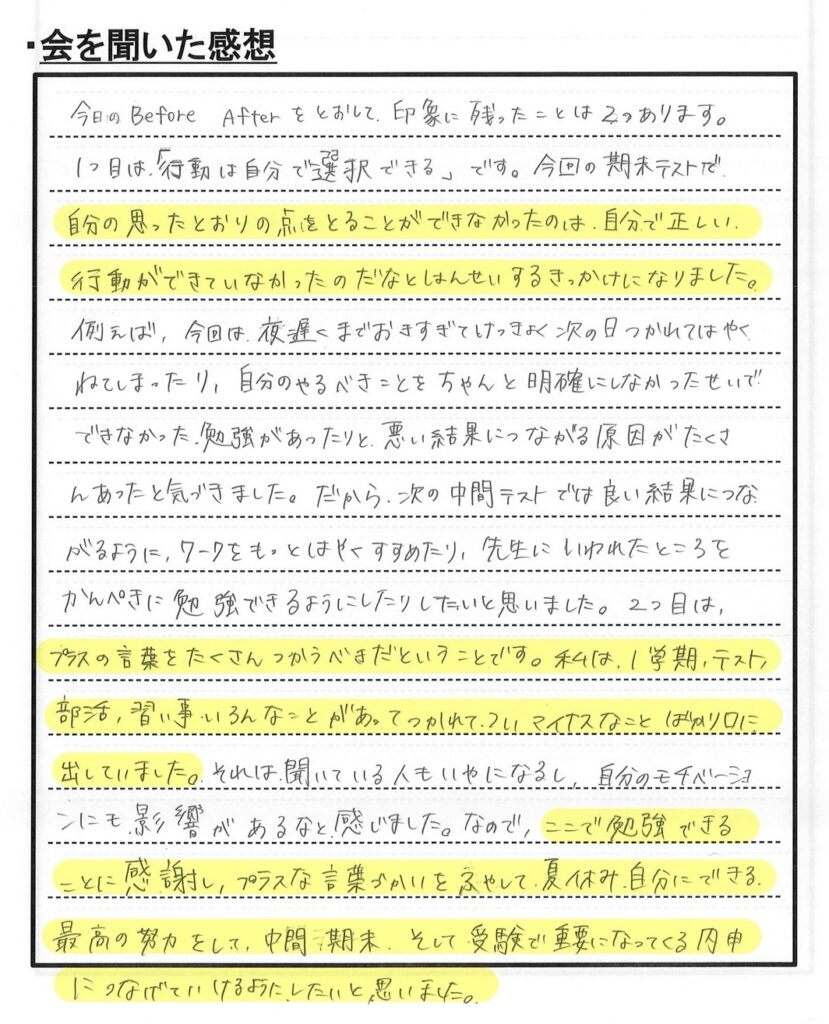 ・会を聞いた感想
今日のBefore Afterをとおして、印象に残ったことは2つあります。
1つ目は、「行動は自分で選択できる」です。今回の期末テストで、
自分の思ったとおりの点をとることができなかったのは、自分で正しい、
行動ができていなかったのだなとはんせいするきっかけになりました。
例えば、今回は、夜遅くまでおきすぎてけっきょく次の日つかれてはやく
ねてしまったり、自分のやるべきことをちゃんと明確にしなかったせいで
できなかった勉強があったりと、悪い結果につながる原因がたくさ
んあったと気づきました。だから、次の中間テストでは良い結果につな
がるように、ワークをもっとはやくすすめたり、先生にいわれたところを
かんぺきに勉強できるようにしたりしたいと思いました。2つ目は、
プラスの言葉をたくさんつかうべきだということです。私は、1学期、テスト、
部活、習い事、いろんなことがあってつかれて、ついマイナスなことばかり口に
出していました。それは、聞いている人もいやになるし、自分のモチベーショ
ンにも影響があるなと感じました。なので、ここで勉強できる
ことに感謝し、プラスな言葉づかいをふやして、夏休み、自分にできる
最高の努力をして、中間、期末、そして受験で重要になってくる内申
につなげていけるようにしたいと思いました。